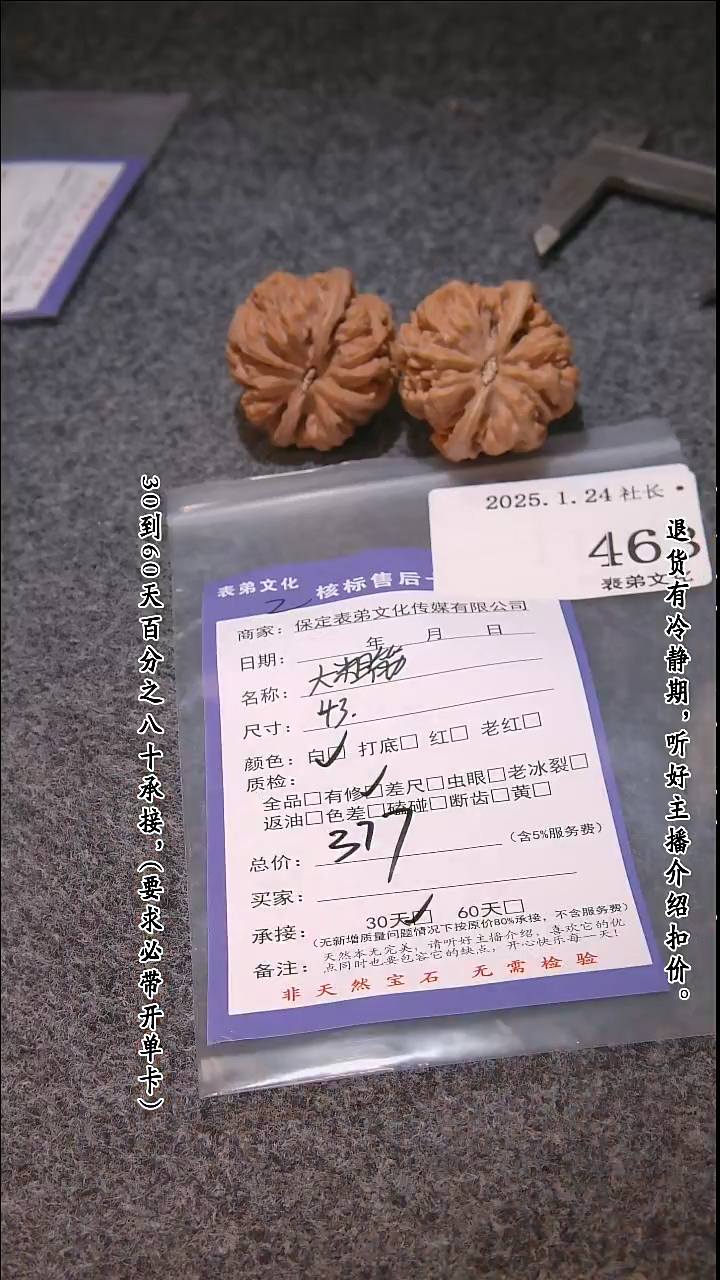 2025.1.24 社长
468
表弟文化
表弟文化 核标售后
商家：保定表弟文化传媒有限公司
日期： 年 月 日
名称：
尺寸：43.
颜色：白□ 打底□ 红□ 老红□
质检：
全品□有修□差尺□虫眼□老冰裂□
返油□色差□磕碰□断齿□黄□
总价：377 （含5%服务费）
买家：
承接：30天□ 60天□
（无新增质量问题情况下按原价80%承接，不含服务费）
备注：天然本无完美，请听好主播介绍，喜欢它的优
点同时也要包容它的缺点，开心快乐每一天！
非天然宝石 无需检验
30到60天百分之八十承接，（要求必带开单卡）
退货有冷静期，听好主播介绍扣价。